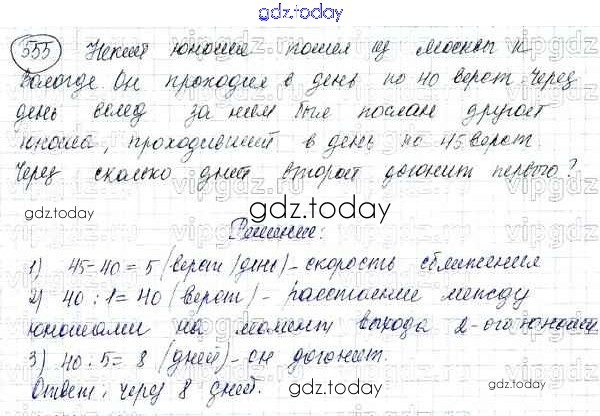 gdz.today
555 Некий юноша пошел из Москвы к
Вологде. Он проходил в день по 40 верст. Через
день вслед за ним был послан другой
юноша, проходивший в день по 45 верст.
Через сколько дней второй догонит первого?
gdz.today
gdz.today
Решение:
1) 45-40=5 (верст/день) - скорость сближения
2) 40:1=40 (верст) - расстояние между
юношами на момент выхода 2-ого юноши
3) 40:5=8 (дней) - он догонит.
Ответ: через 8 дней.
gdz.today
gdz.today